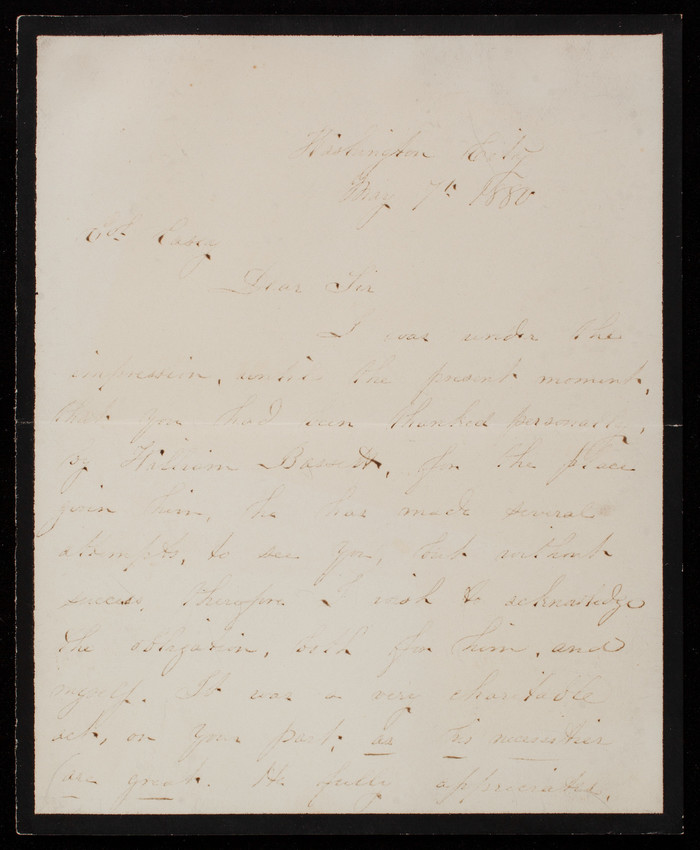 Washington City
May 7th 1880
Col. Casey
Dear Sir
I was under the
impression, until the present moment,
that you had been thanked personally,
by William Bassett, for the place
given him, he has made several
atempts, to see you, but without
success, therefore I wish to acknowledge
the obligation, both for him, and
myself. It was a very charitable
act, on your part, as his necessities
are great. He fully appreciates,